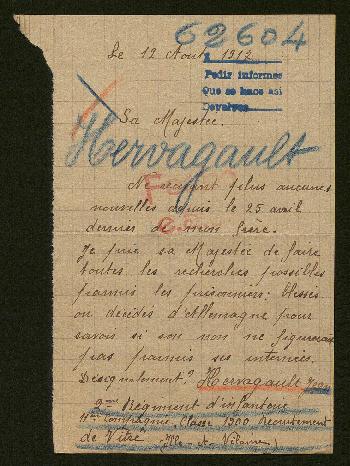 62604
Le 12 Aout 1917
Pedir informes
Que se hace asi
Sa Majestée.
Hervagault
Ne recevant plus aucunes
nouvelles depuis le 25 avril
dernier de mon frère.
Je prie sa Majestée de faire
toutes les recherches possibles
parmis les prisonniers; Blessés
ou décédés d'Allemagne pour
savoir si son nom ne figurerait
pas parmis ses internées.
Désignalement? Hervagault Jean
2eme Régiment d'infanterie
11eme Compagnie, Classe 1900 Recrutement
de Vitré (Ille-et-Vilaine)